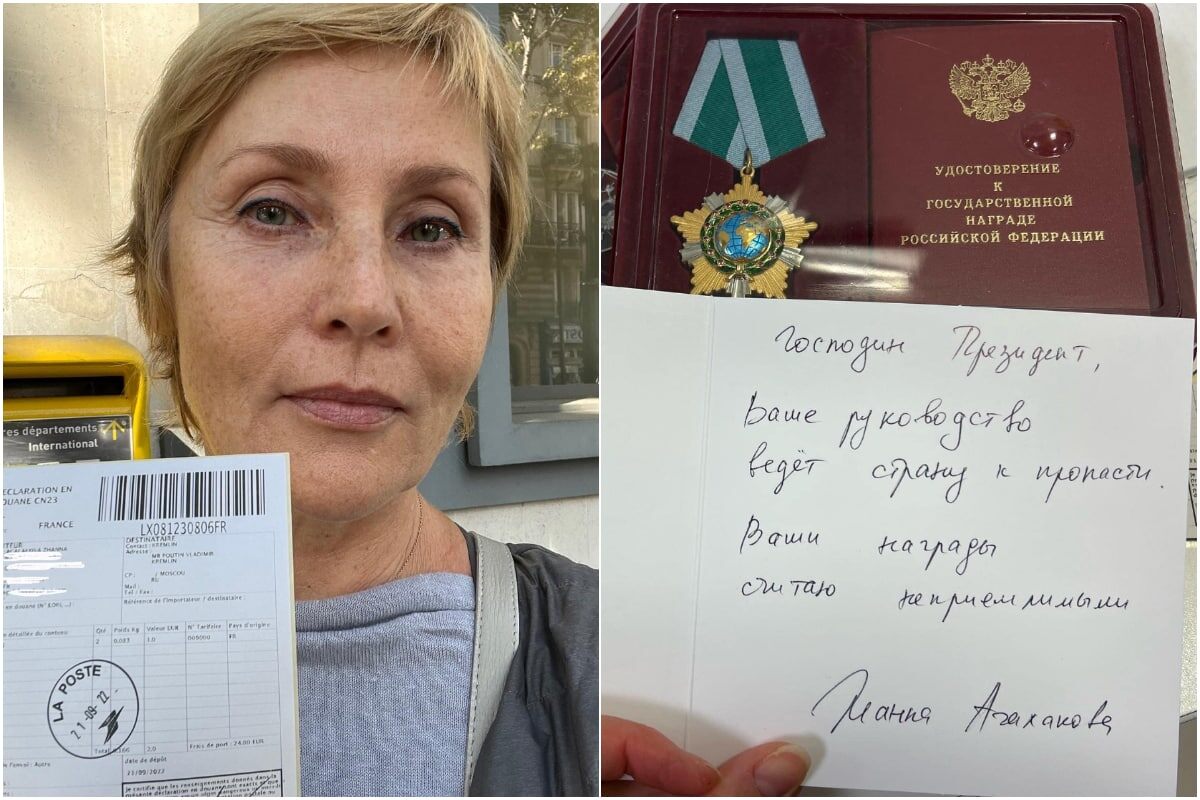 res départements
International
DECLARATION EN
DOUANE CN23
FRANCE
LX081230806FR
ZHANNA
DESTINATAIRE
Contact: KREMLIN
Adresse:
MR POUTIN VLADIMIR
KREMLIN
CP: / MOSCOU
RU
Mail:
Tel / Fax:
Référence de l'importateur / destinataire:
en douane (N° EORI, ...):
détaillée du contenu
Qté
Poids Kg
Valeur EUR
N° Tarifaire
Pays d'origine
2
0,083
1.0
000000
FR
LA POSTE
21-09-22
Total
0.166
2.0
Frais de port: 24.00 EUR
Autre
date de dépôt
21/09/2022
Je certifie que les renseignements donnés dans la
УДОСТОВЕРЕНИЕ
К
ГОСУДАРСТВЕННОЙ
НАГРАДЕ
РОССИЙСКОЙ ФЕДЕРАЦИИ
Господин Президент,
Ваше руководство
ведёт страну к пропасти.
Ваши награды
считаю неприемлимыми
Жанна Агалакова